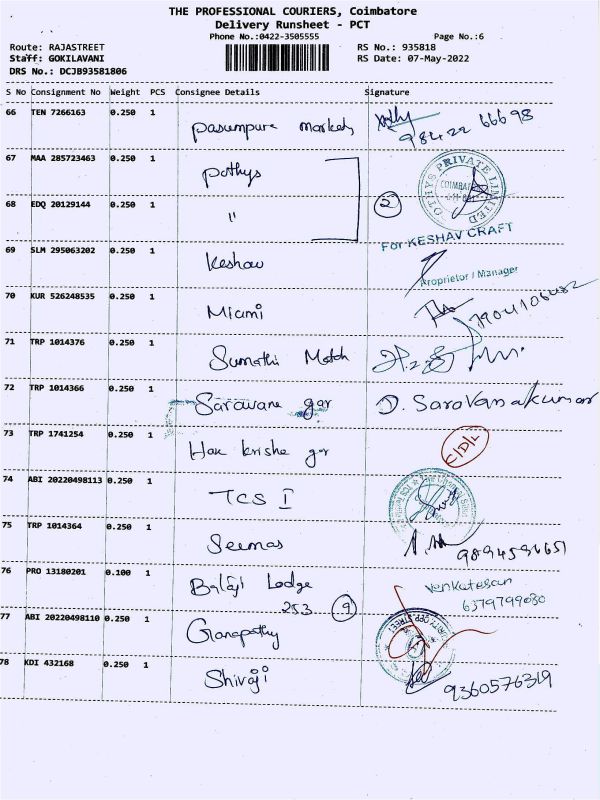 THE PROFESSIONAL COURIERS, Coimbatore
Delivery Runsheet - PCT
Phone No.:0422-3505555
Page No.:6
Route: RAJASTREET
RS No.: 935818
Staff: GOKILAVANI
RS Date: 07-May-2022
DRS No.: DCJB93581806
S No Consignment No Weight PCS Consignee Details Signature
66 TEN 7266163 0.250 1 98422 66698
67 MAA 285723463 0.250 1 pothys
PRIVATE LIMITED
68 EDQ 20129144 0.250 1 " 2
For KESHAV CRAFT
69 SLM 295063202 0.250 1 Keshav
Proprietor / Manager
70 KUR 526248535 0.250 1 Miami
71 TRP 1014376 0.250 1 Sumathi Match
72 TRP 1014366 0.250 1 Saravana gar D. Saravanakumar
73 TRP 1741254 0.250 1 Hare krishe gar
74 ABI 20220498113 0.250 1 TCS I
75 TRP 1014364 0.250 1 Seemas
76 PRO 13180201 0.100 1 Balaji Lodge Venkatesan
253 9 6379799080
77 ABI 20220498110 0.250 1 Ganapathy
78 KDI 432168 0.250 1 Shivaji 9360576319